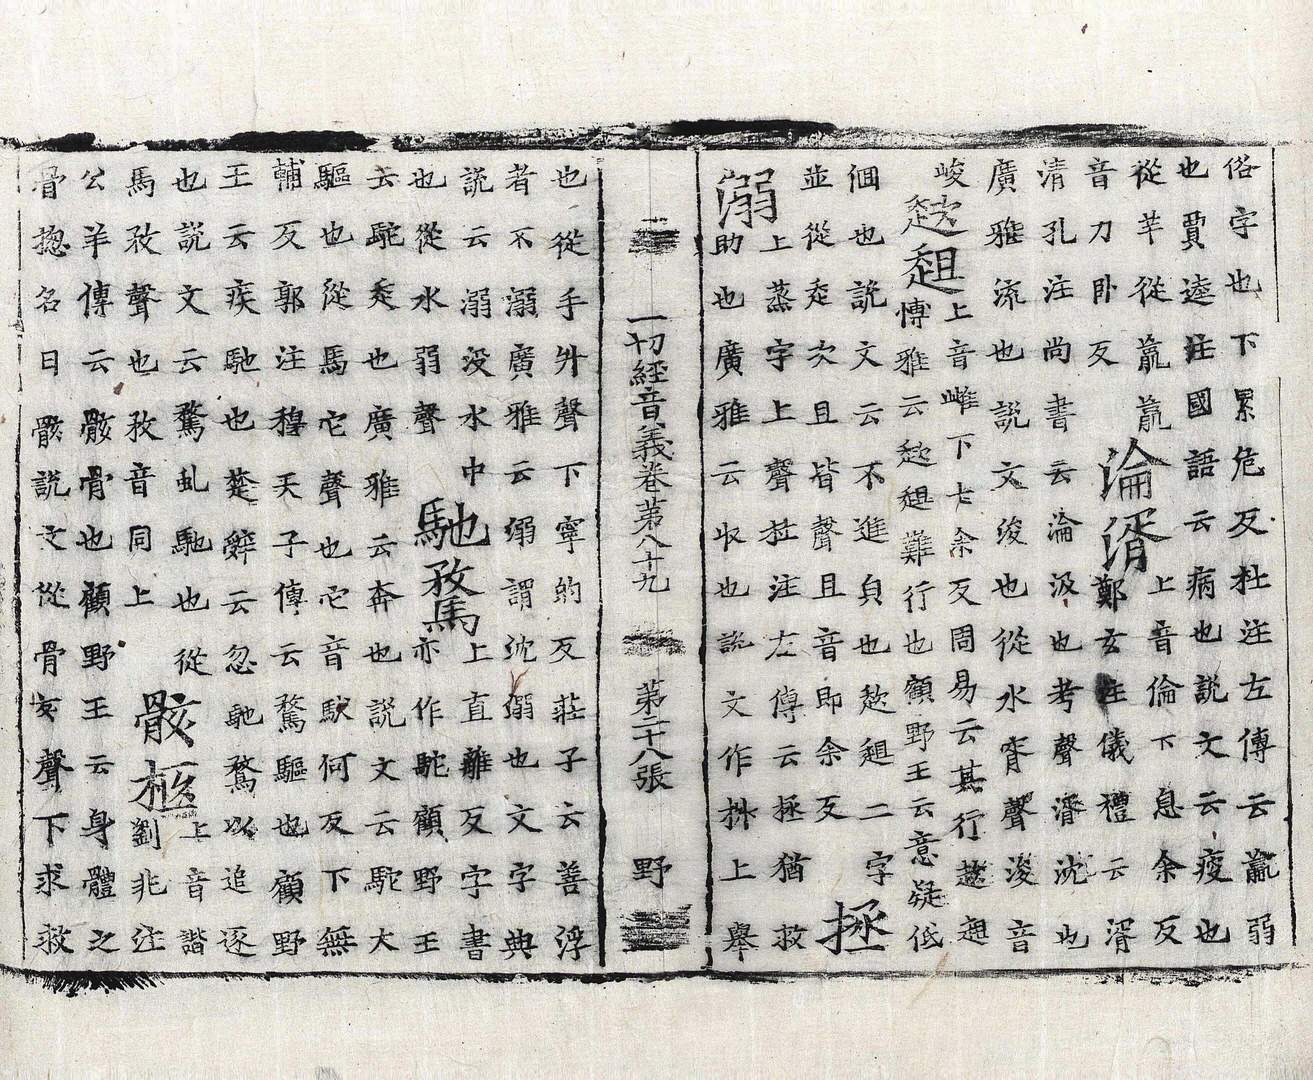 俗字也下累危反杜注左傳云羸弱
也賈逵注國語云病也說文云疲也
從羊從𣎆𣎆 淪湑 上音倫下息余反
音刀臥反 鄭玄注儀禮云湑
清孔注尚書云淪汲也考聲湑沈也
廣雅流也說文浚也從水胥聲浚音
峻 趑趄 上音雌下七余反周易云其行趑趄
博雅云趑趄難行也顧野王云意疑低
佪也說文云不進皃也趑趄二字 拯
並從走次且皆聲且音即余反
溺 上蒸字上聲杜注左傳云拯猶救
助也廣雅云收也說文作抍上舉
也從手升聲下寧的反莊子云善浮
者不溺廣雅云溺謂沈溺也文字典
說云溺沒水中 馳騖 上直離反字書
也從水弱聲 亦作駝顧野王
云駝走也廣雅云奔也說文云駝大
驅也從馬它聲也它音馱何反下無
輔反郭注穆天子傳云騖驅也顧野
王云疾馳也楚辭云忽馳騖以追逐
也說文云騖亂馳也從 骸柩 上音諧
馬敄聲也敄音同上 劉兆注
公羊傳云骸骨也顧野王云身體之
骨揔名曰骸說文從骨亥聲下求救
一切經音義卷第八十九 第二十八張 野